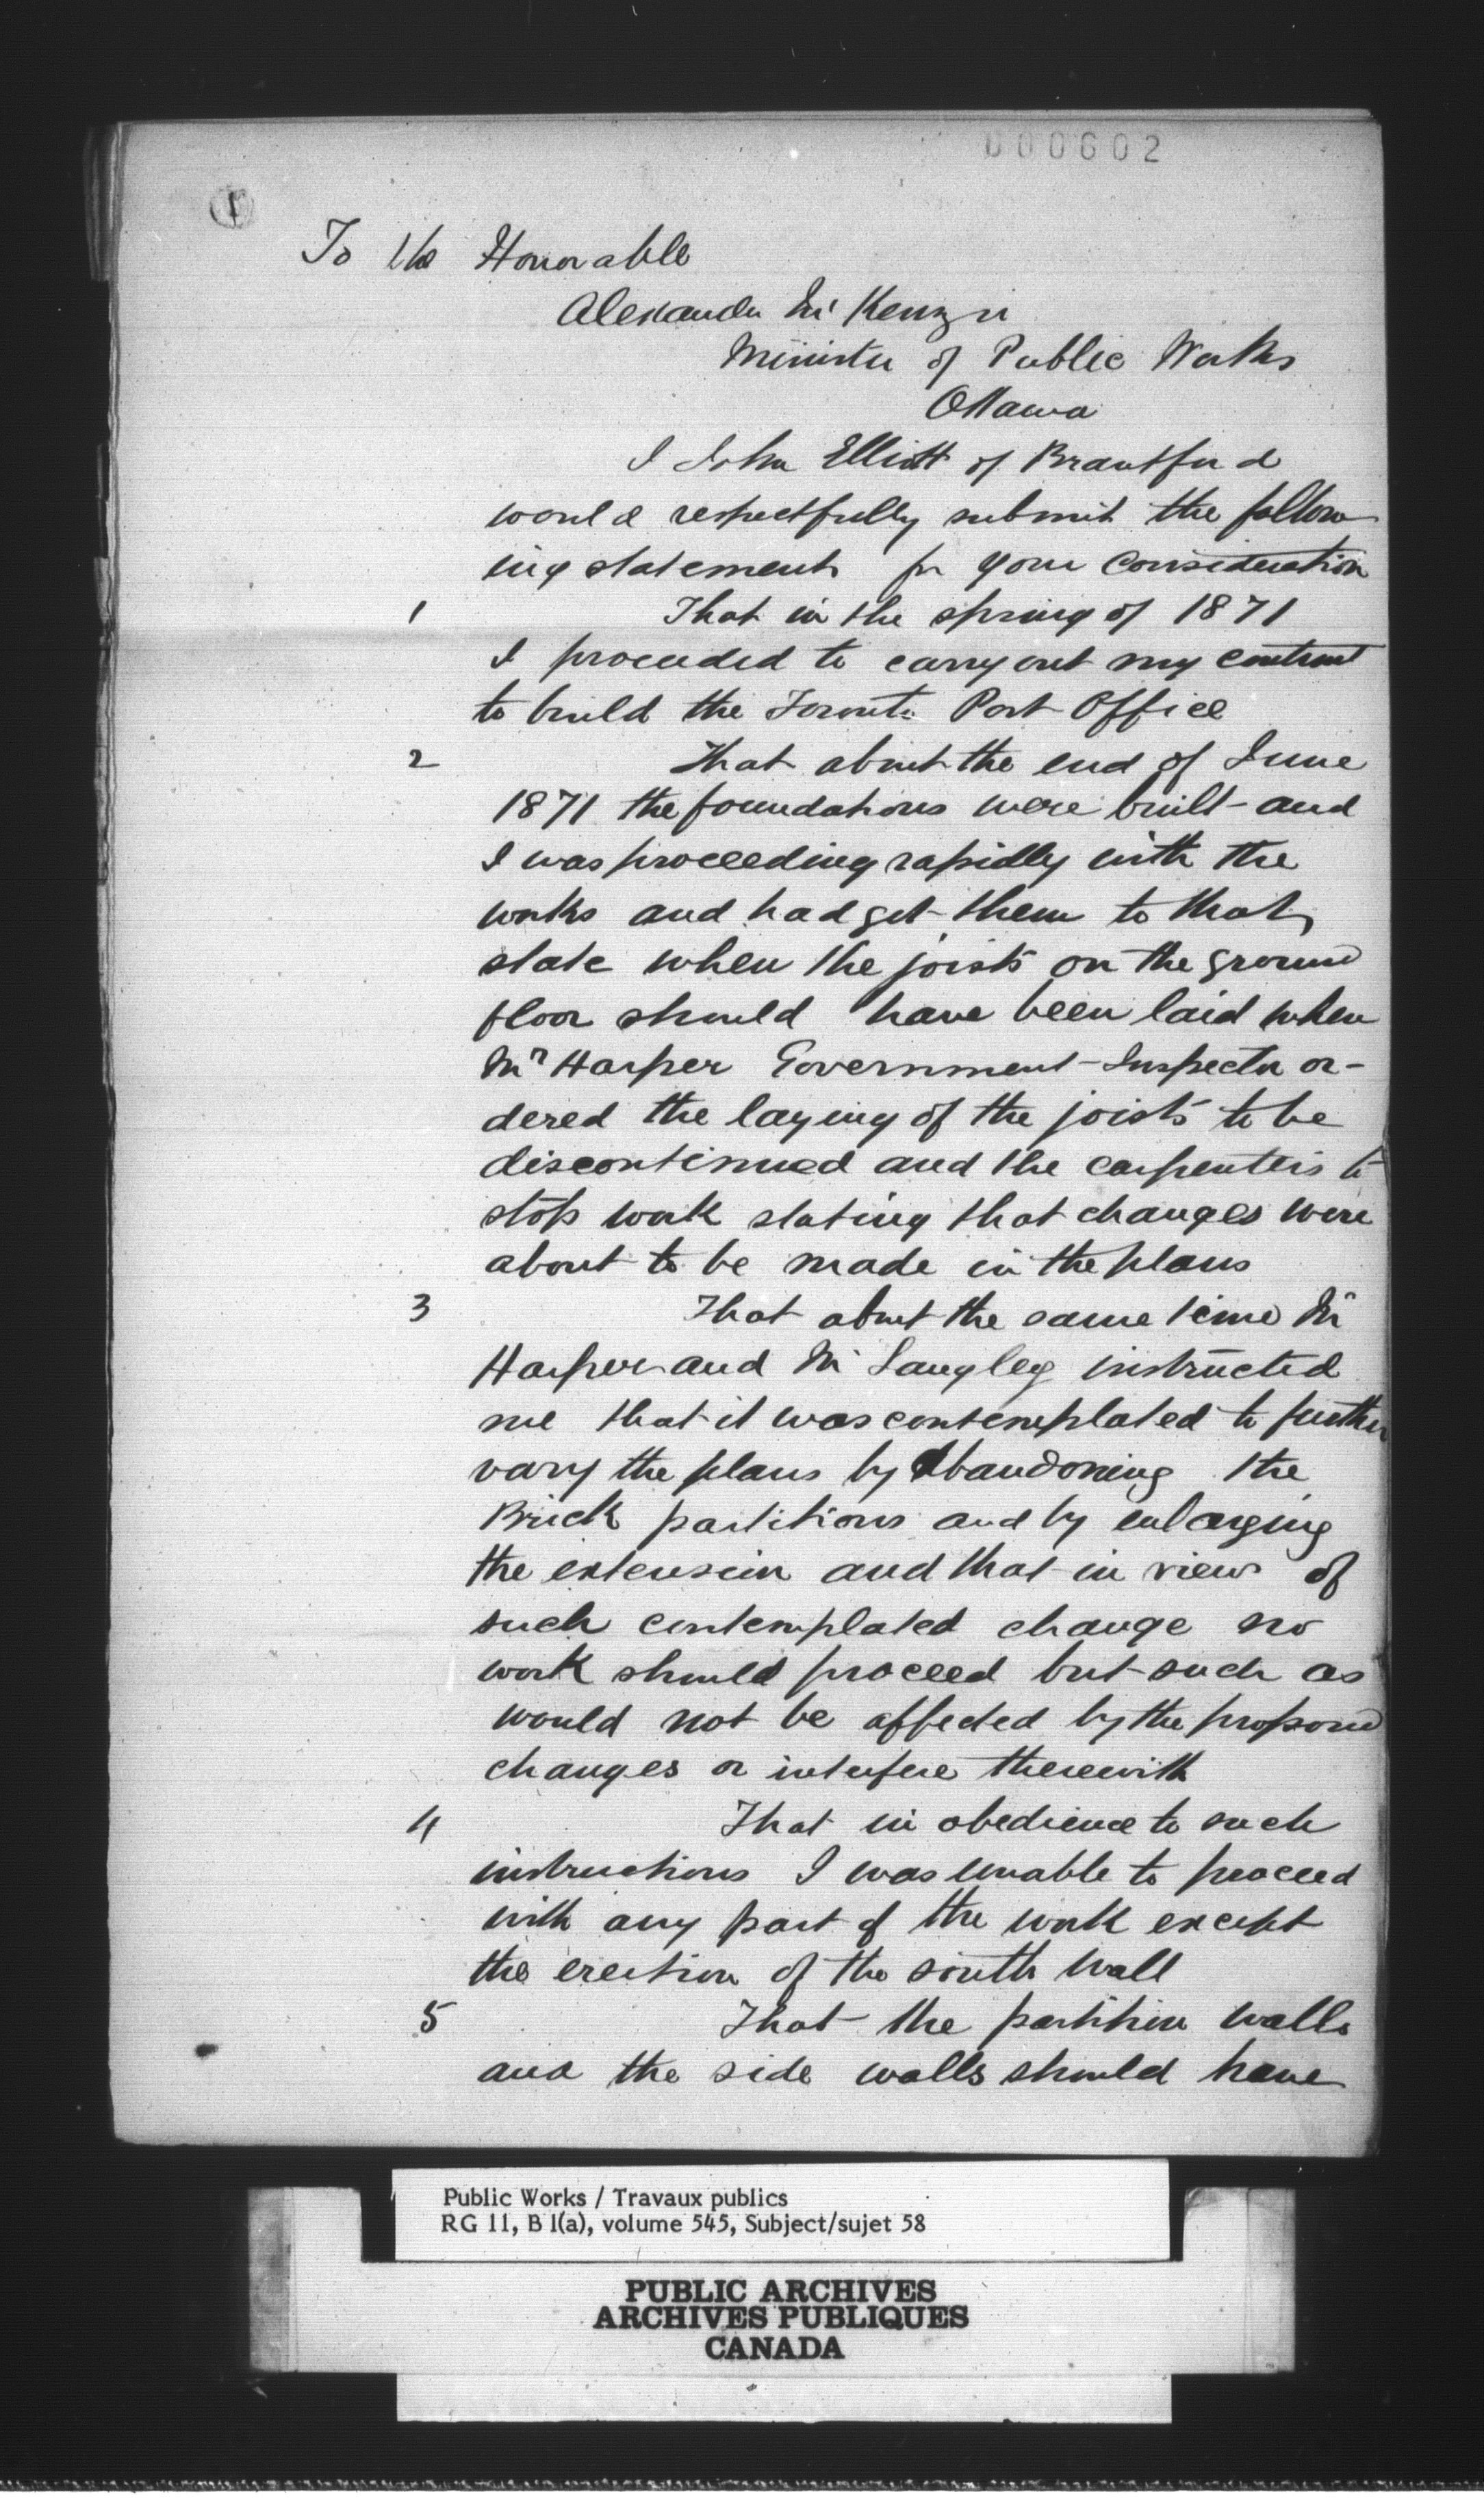 000602
1
To the Honorable
Alexander Mc Kenzie
Minister of Public Works
Ottawa
I John Elliott of Brantford
would respectfully submit the follow
ing statement for your consideration
1 That in the spring of 1871
I proceeded to carry out my contract
to build the Toronto Post Office
2 That about the end of June
1871 the foundations were built and
I was proceeding rapidly with the
works and had got them to that
state when the joists on the ground
floor should have been laid when
Mr Harper Government Inspector or-
dered the laying of the joists to be
discontinued and the carpenters to
stop work stating that changes were
about to be made in the plans
3 That about the same time Mr
Harper and Mr Langley instructed
me that it was contemplated to further
vary the plans by abandoning the
Brick partitions and by enlarging
the extension and that in view of
such contemplated change no
work should proceed but such as
would not be affected by the proposed
changes or interfere therewith
4 That in obedience to such
instructions I was unable to proceed
with any part of the work except
the erection of the south wall
5 That the partition walls
and the side walls should have
Public Works / Travaux publics
RG 11, B 1(a), volume 545, Subject/sujet 58
PUBLIC ARCHIVES
ARCHIVES PUBLIQUES
CANADA